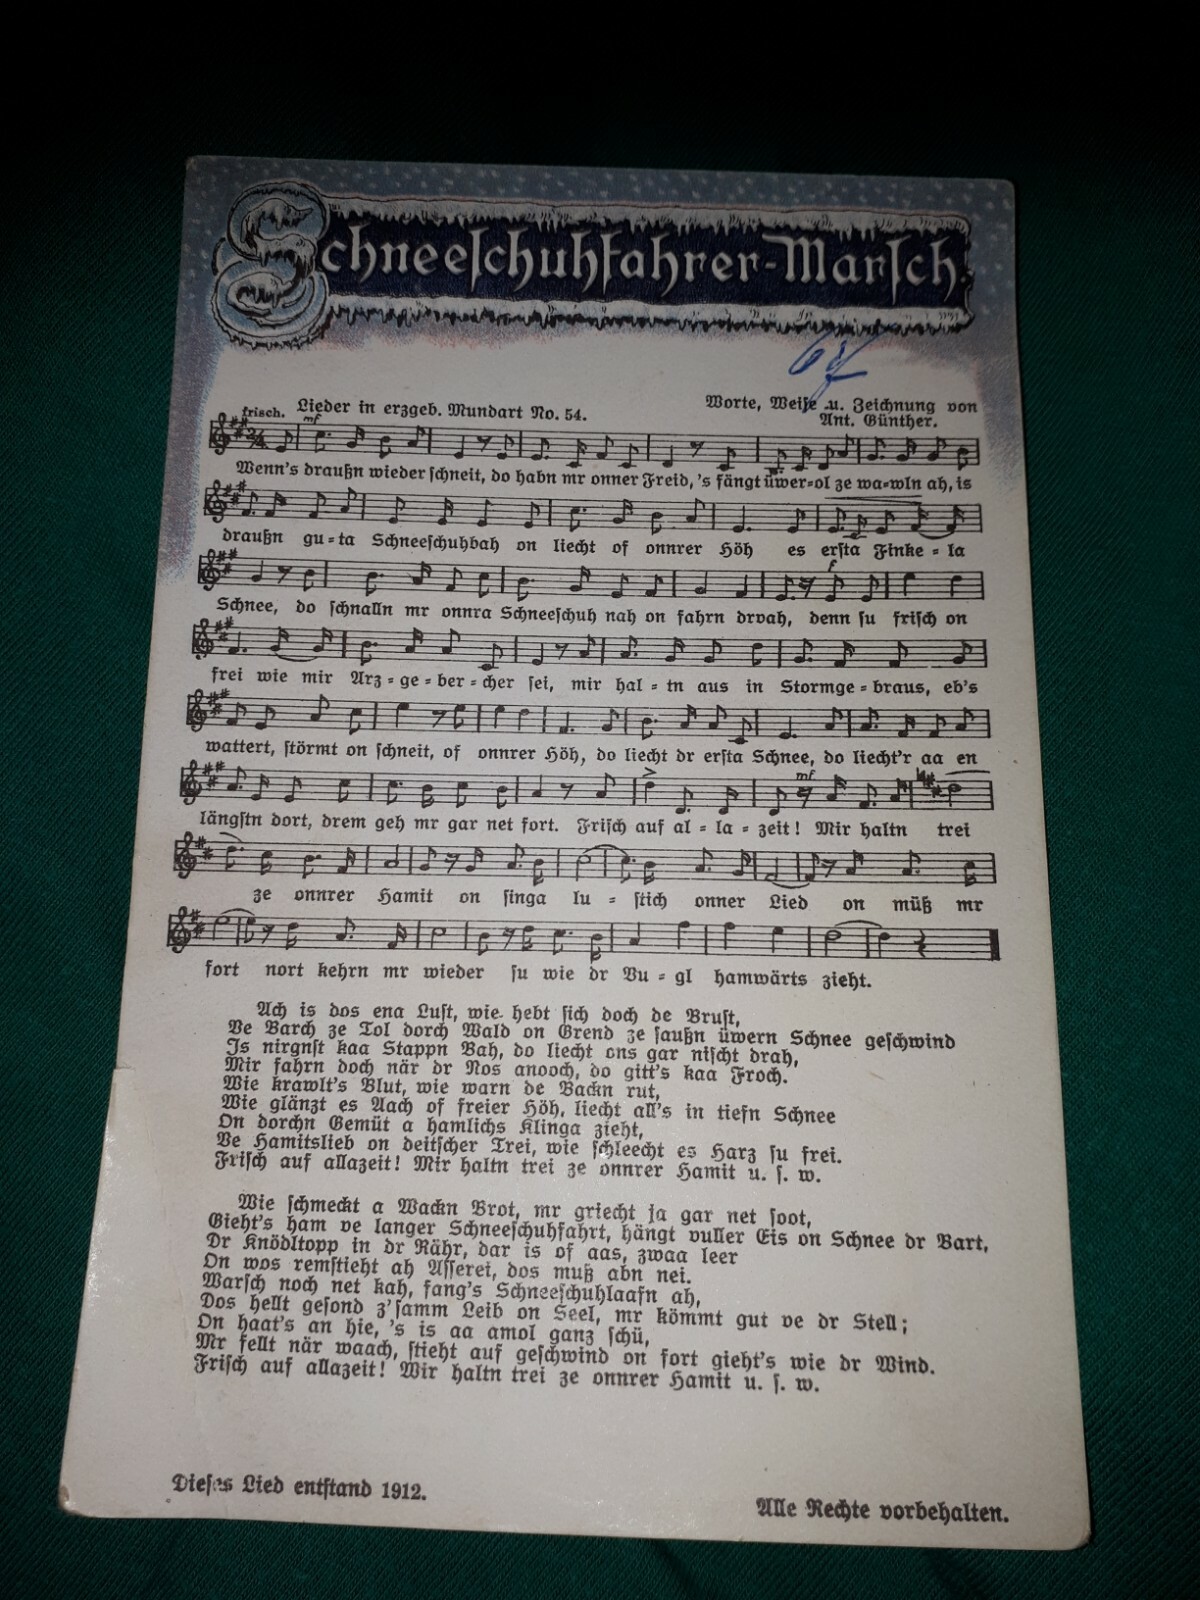 Schneeschuhfahrer-Marsch.
frisch. Lieder in erzgeb. Mundart No. 54.
Worte, Weise u. Zeichnung von
Ant. Günther.
mf
Wenn's draußn wieder schneit, do habn mr onner Freid, 's fängt üwer=ol ze wa=wln ah, is
draußn gu=ta Schneeschuhbah on liecht of onnrer Höh es ersta Finke=la
f
Schnee, do schnalln mr onnra Schneeschuh nah on fahrn drvah, denn su frisch on
frei wie mir Arz=ge=ber=cher sei, mir hal=tn aus in Stormge=braus, eb's
wattert, störmt on schneit, of onnrer Höh, do liecht dr ersta Schnee, do liecht'r aa en
mf
längstn dort, drem geh mr gar net fort. Frisch auf al=la=zeit! Mir haltn trei
ze onnrer Hamit on singa lu=stich onner Lied on müß mr
fort nort kehrn mr wieder su wie dr Vu=gl hamwärts zieht.
Ach is dos ena Lust, wie hebt sich doch de Brust,
Ve Barch ze Tol dorch Wald on Grend ze saußn üwern Schnee geschwind
Is nirgnst kaa Stappn Bah, do liecht ons gar nischt drah,
Mir fahrn doch när dr Nos anooch, do gitt's kaa Froch.
Wie krawlt's Blut, wie warn de Backn rut,
Wie glänzt es Aach of freier Höh, liecht all's in tiefn Schnee
On dorchn Gemüt a hamlichs Klinga zieht,
Ve Hamitslieb on deitscher Trei, wie schleecht es Harz su frei.
Frisch auf allazeit! Mir haltn trei ze onnrer Hamit u. s. w.
Wie schmeckt a Wackn Brot, mr griecht ja gar net soot,
Gieht's ham ve langer Schneeschuhfahrt, hängt vuller Eis on Schnee dr Bart,
Dr Knödltopp in dr Rähr, dar is of aas, zwaa leer
On wos remstieht ah Asserei, dos muß abn nei.
Warsch noch net kah, fang's Schneeschuhlaafn ah,
Dos hellt gesond z'samm Leib on Seel, mr kömmt gut ve dr Stell;
On haat's an hie, 's is aa amol ganz schü,
Mr fellt när waach, stieht auf geschwind on fort gieht's wie dr Wind.
Frisch auf allazeit! Wir haltn trei ze onnrer Hamit u. s. w.
Dieses Lied entstand 1912.
Alle Rechte vorbehalten.